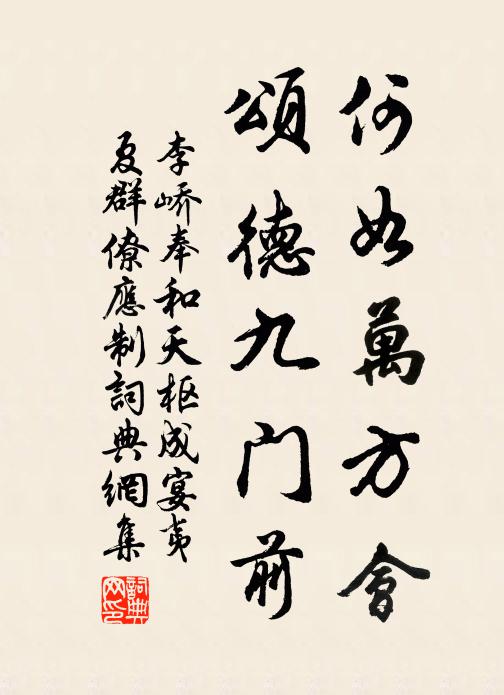 何如萬方會
頌德九门前
李嶠奉和天枢成宴夷
夏群僚應制詞典網集